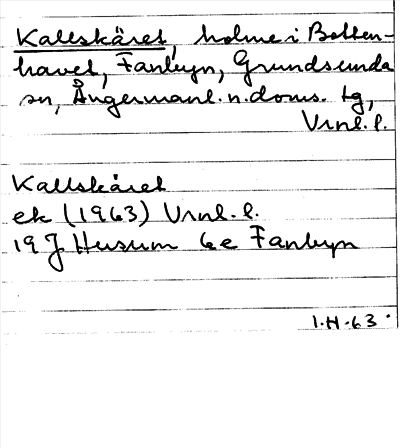 Kallskäret, holme i Botten-
havet, Fanbyn, Grundsunda
sn, Ångermanl. n. doms. tg,
Vrnl. l.
Kallskäret
ek (1963) Vrnl. l.
19 J Husum 6e Fanbyn
I.H.63